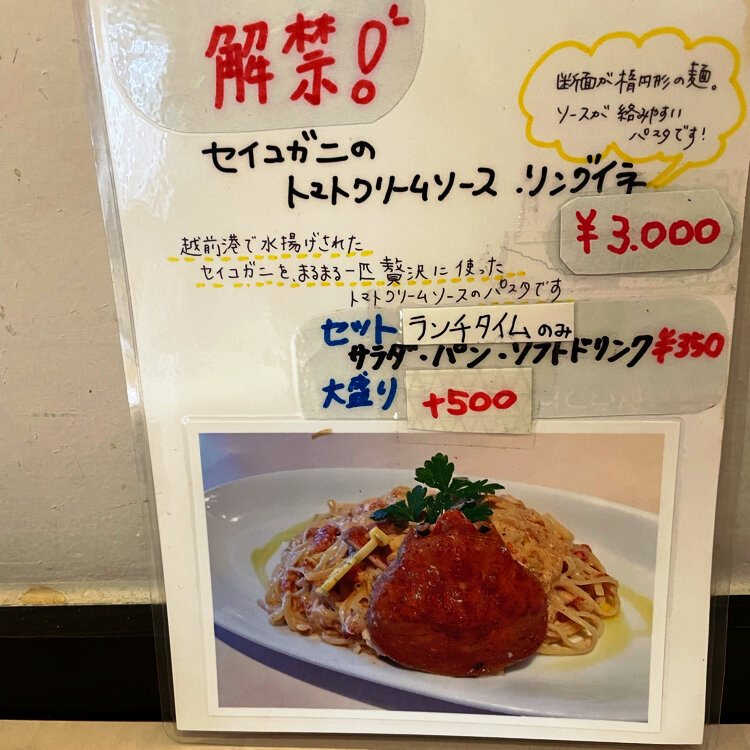 解禁!
断面が楕円形の麺。
ソースが絡みやすい
パスタです!
セイコガニの
トマトクリームソース・リングイネ
¥3.000
越前港で水揚げされた
セイコガニを、まるまる一匹贅沢に使った
トマトクリームソースのパスタです
セット ランチタイムのみ
サラダ・パン・ソフトドリンク¥350
大盛り +500